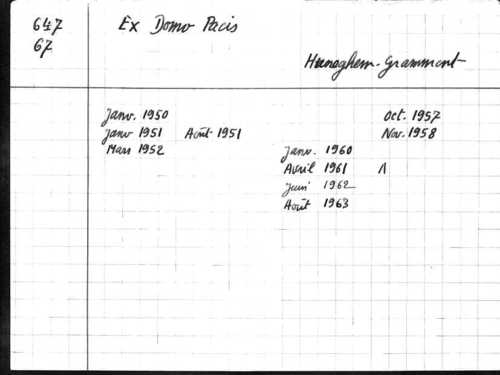 647
67
Ex Domo Pacis
Huneghem-Grammont
Janv. 1950
Oct. 1957
Janv 1951 Août 1951
Nov. 1958
Mars 1952
Janv. 1960
Avril 1961 Λ
Juin 1962
Août 1963